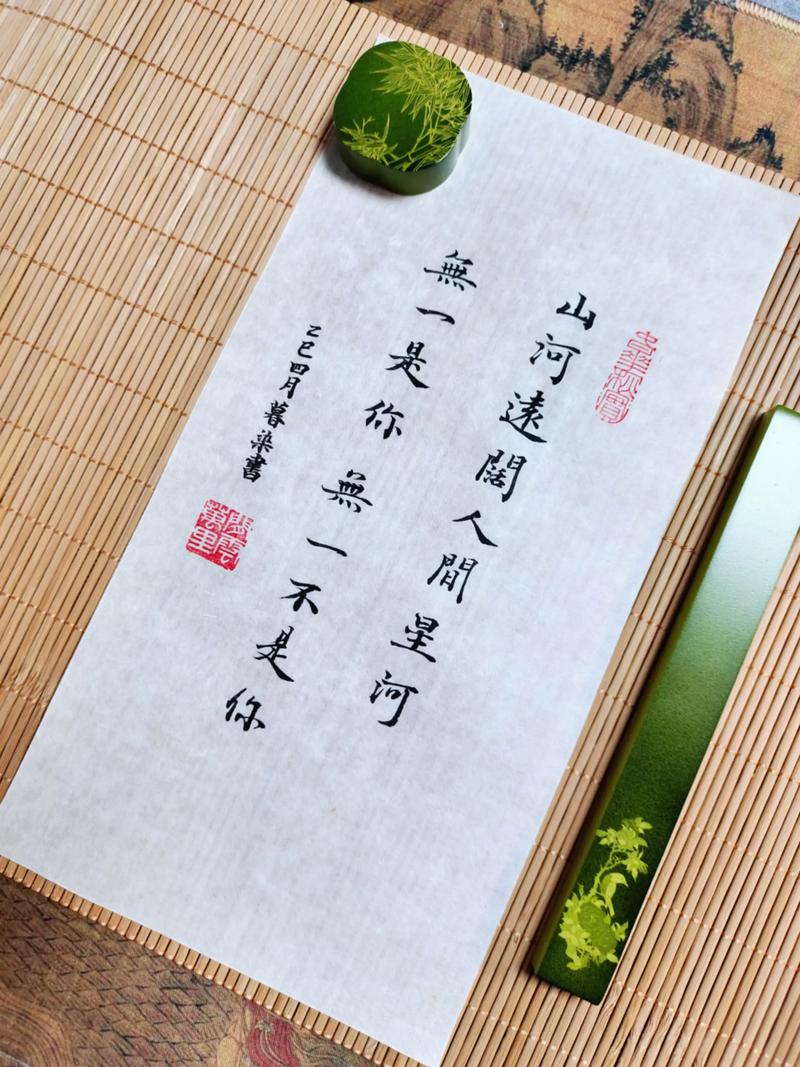 山河遠闊人間星河
無一是你無一不是你
乙巳四月暮染書
春華秋實